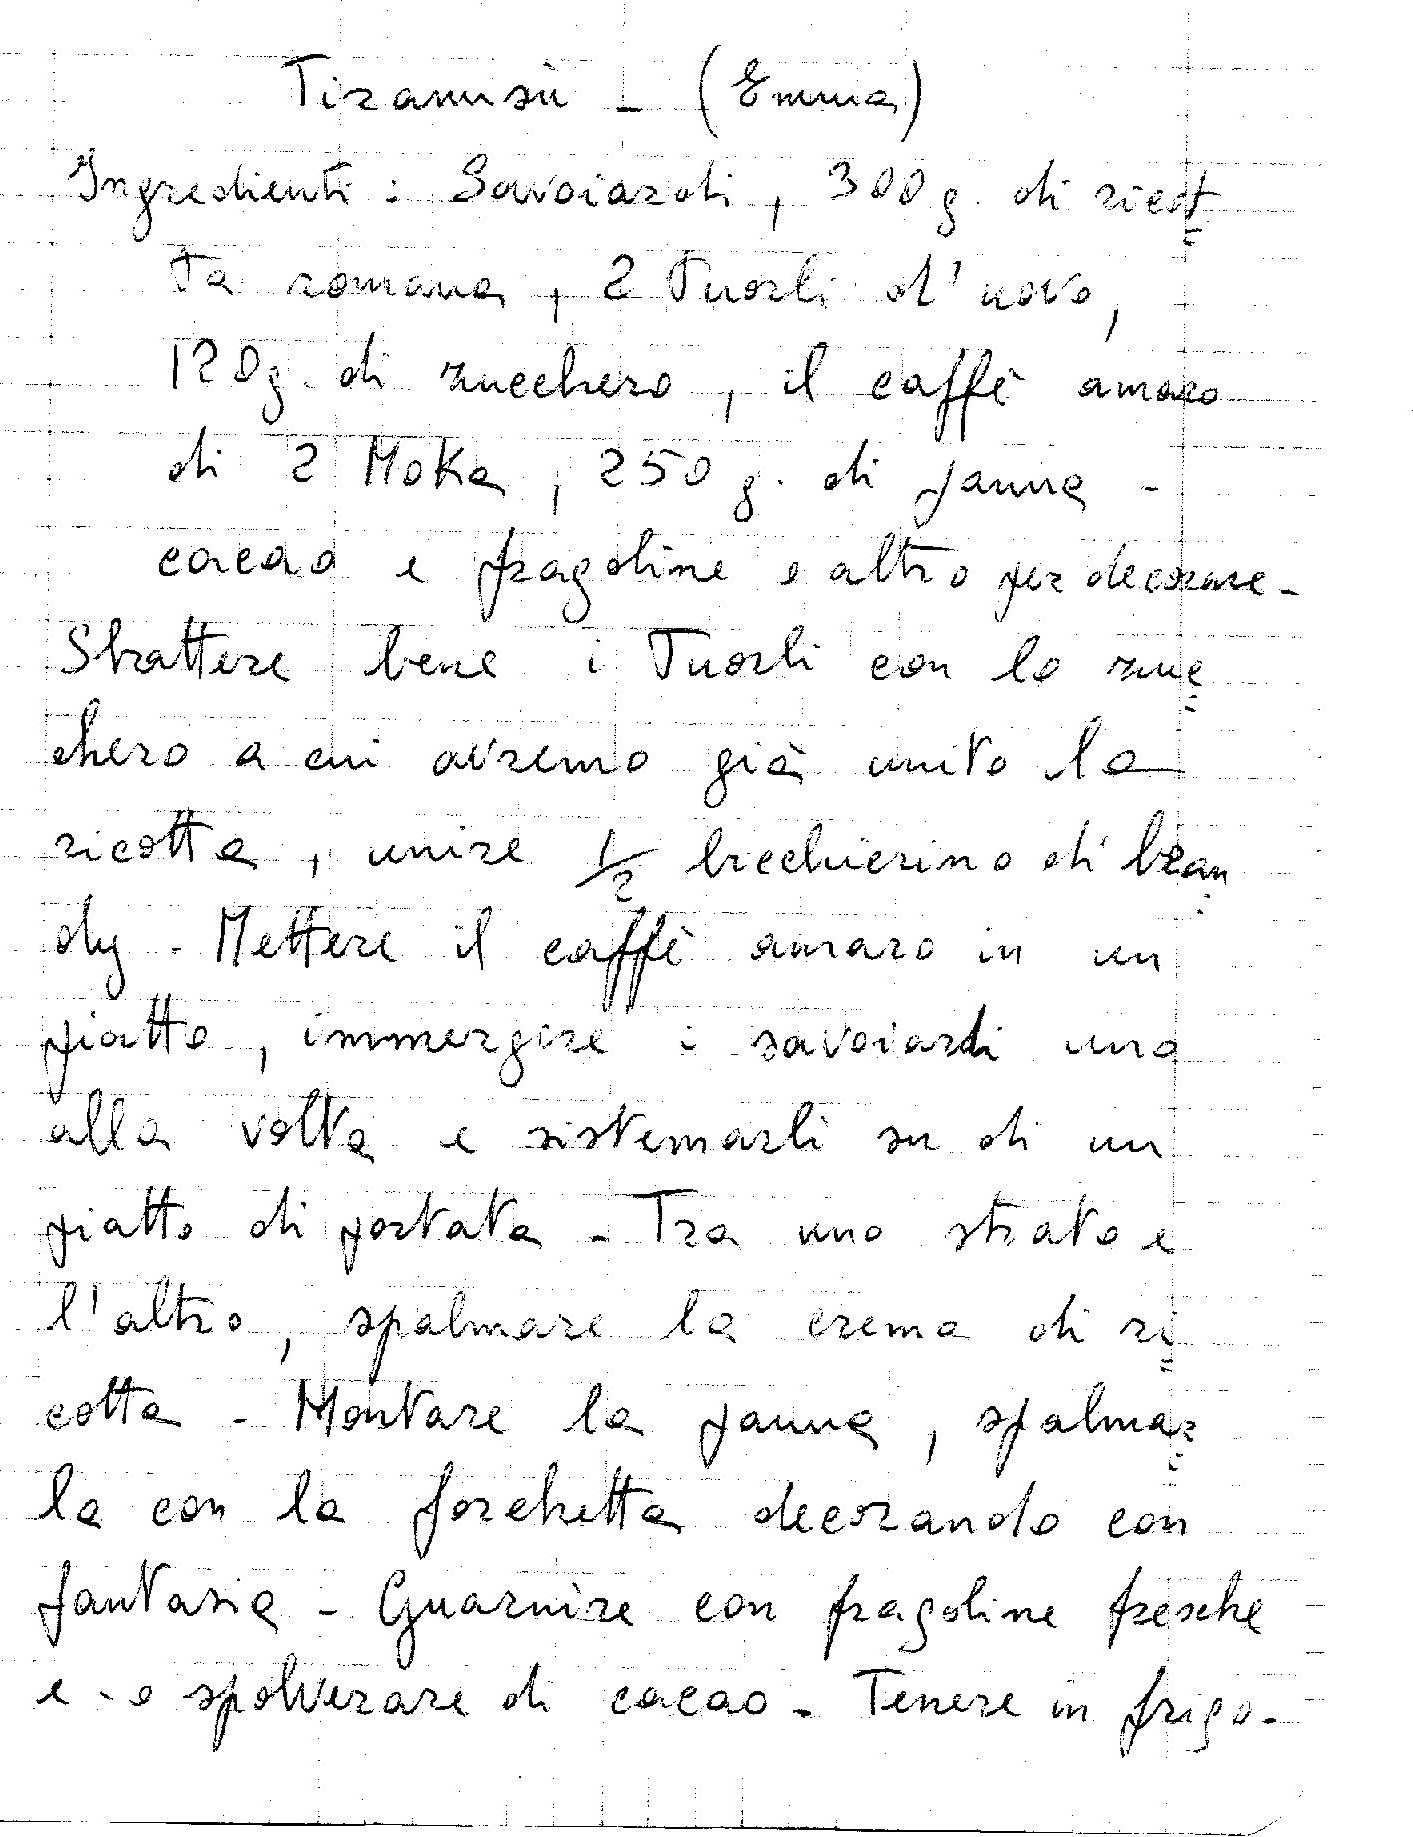 Tiramisù - (Emma)
Ingredienti: Savoiardi, 300 g. di ricot=
ta romana, 2 Tuorli d'uovo,
120 g. di zucchero, il caffè amaro
di 2 Moka, 250 g. di panna -
cacao e fragoline o altro per decorare -
Sbattere bene i Tuorli con lo zuc=
chero a cui avremo già unito la
ricotta, unire 1/2 bicchierino di bran
dy - Mettere il caffè amaro in un
piatto, immergere i savoiardi uno
alla volta e sistemarli su di un
piatto di portata - Tra uno strato e
l'altro, spalmare la crema di ri=
cotta - Montare la panna, spalmar=
la con la forchetta decorando con
fantasia - Guarnire con fragoline fresche
e - o spolverare di cacao - Tenere in frigo -